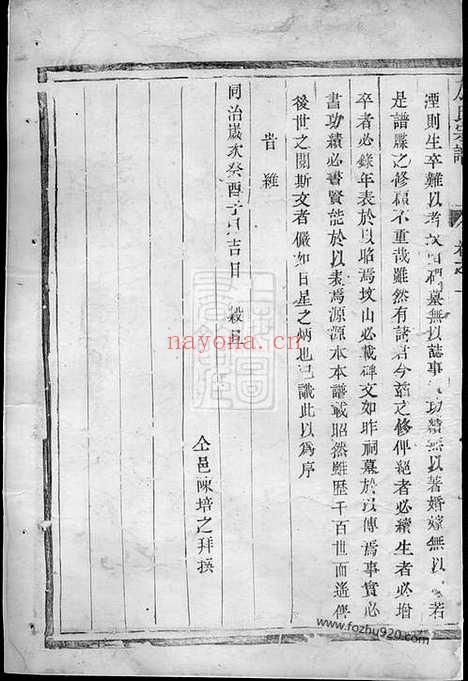 氏宗譜
湮則生卒難以考文 碑墓無以誌事 功績無以著婚嫁無以 若
是譜牒之修顧不重哉雖然有諸君今茲之修俾絕者必續生者必增
卒者必錄年表於以昭焉坟山必載碑文如昨祠墓於以傳焉事實必
書功績必書賢能於以表焉源源本本譜載昭然雖歷千百世而遙俾
後世之閱斯文者儼如日星之炳也已識此以為序
旹維
同治嵗次癸酉 吉日 榖旦
仝邑陳培之拜撰
nayona.cn
www.fozhu920.com